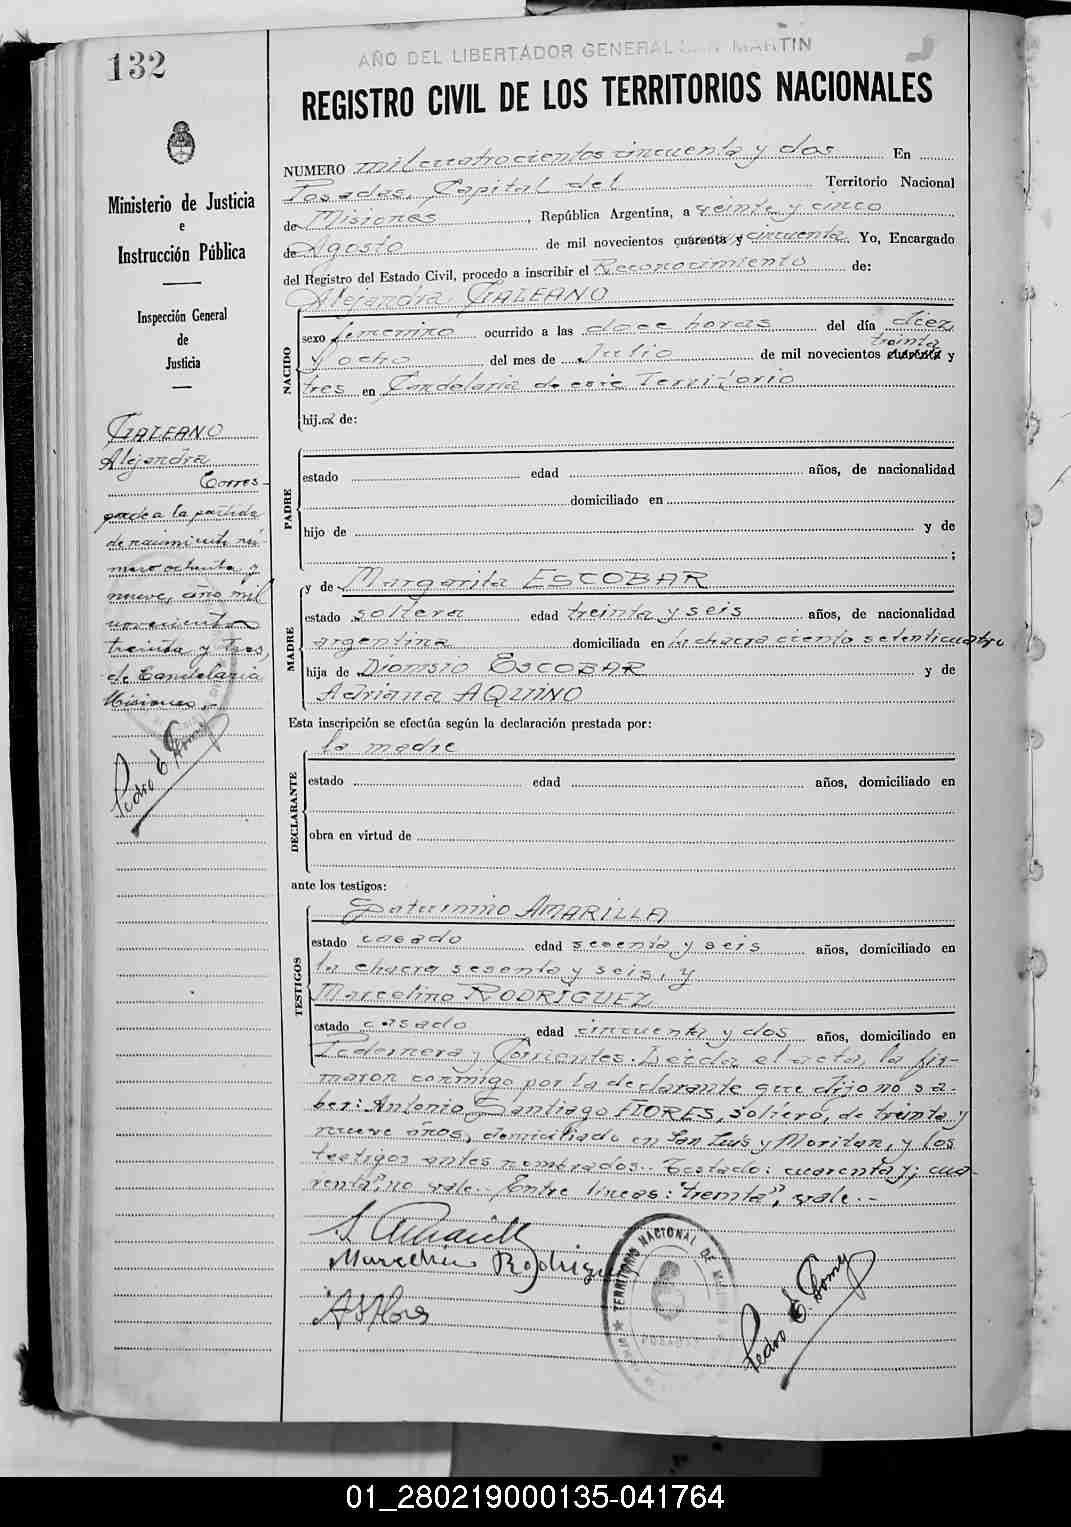 132
AÑO DEL LIBERTADOR GENERAL SAN MARTIN
REGISTRO CIVIL DE LOS TERRITORIOS NACIONALES
Ministerio de Justicia
e
Instrucción Pública
Inspección General
de
Justicia
GALEANO
Alejandra
Corres-
ponde a la partida
de nacimiento nú-
mero ochenta y
nueve, año mil
novecientos
treinta y tres,
de Candelaria
Misiones.-
NUMERO mil cuatrocientos cincuenta y dos En
Posadas, Capital del Territorio Nacional
de Misiones, República Argentina, a veinte y cinco
de Agosto de mil novecientos cuarenta y cincuenta. Yo, Encargado
del Registro del Estado Civil, procedo a inscribir el Reconocimiento de:
Alejandra GALEANO
NACIDO
sexo femenino ocurrido a las doce horas del día diez
treinta
y ocho del mes de Julio de mil novecientos cuarenta y
tres en Candelaria de este Territorio
hij.a de:
PADRE
estado edad años, de nacionalidad
domiciliado en
hijo de y de
;
MADRE
y de Margarita ESCOBAR
estado soltera edad treinta y seis años, de nacionalidad
argentina domiciliada en la chacra ciento setenticuatro
hija de Dionisio ESCOBAR y de
Adriana AQUINO
Esta inscripción se efectúa según la declaración prestada por:
la madre
DECLARANTE
estado edad años, domiciliado en
obra en virtud de
ante los testigos:
TESTIGOS
Saturnino AMARILLA
estado casado edad sesenta y seis años, domiciliado en
la chacra sesenta y seis, y
Marcelino RODRIGUEZ
estado casado edad cincuenta y dos años, domiciliado en
Pedernera y Corrientes. Leída el acta, la fir-
maron conmigo por la declarante que dijo no sa-
ber: Antonio Santiago FLORES, soltero, de treinta y
nueve años, domiciliado en San Luis y Moritan, y los
testigos antes nombrados.. Testado: cuarenta y; cua-
renta", no vale.- Entre líneas: "treinta", vale.-
S Amarilla
Marcelino Rodriguez
A S Flores
TERRITORIO NACIONAL DE
POSADAS
01_280219000135-041764